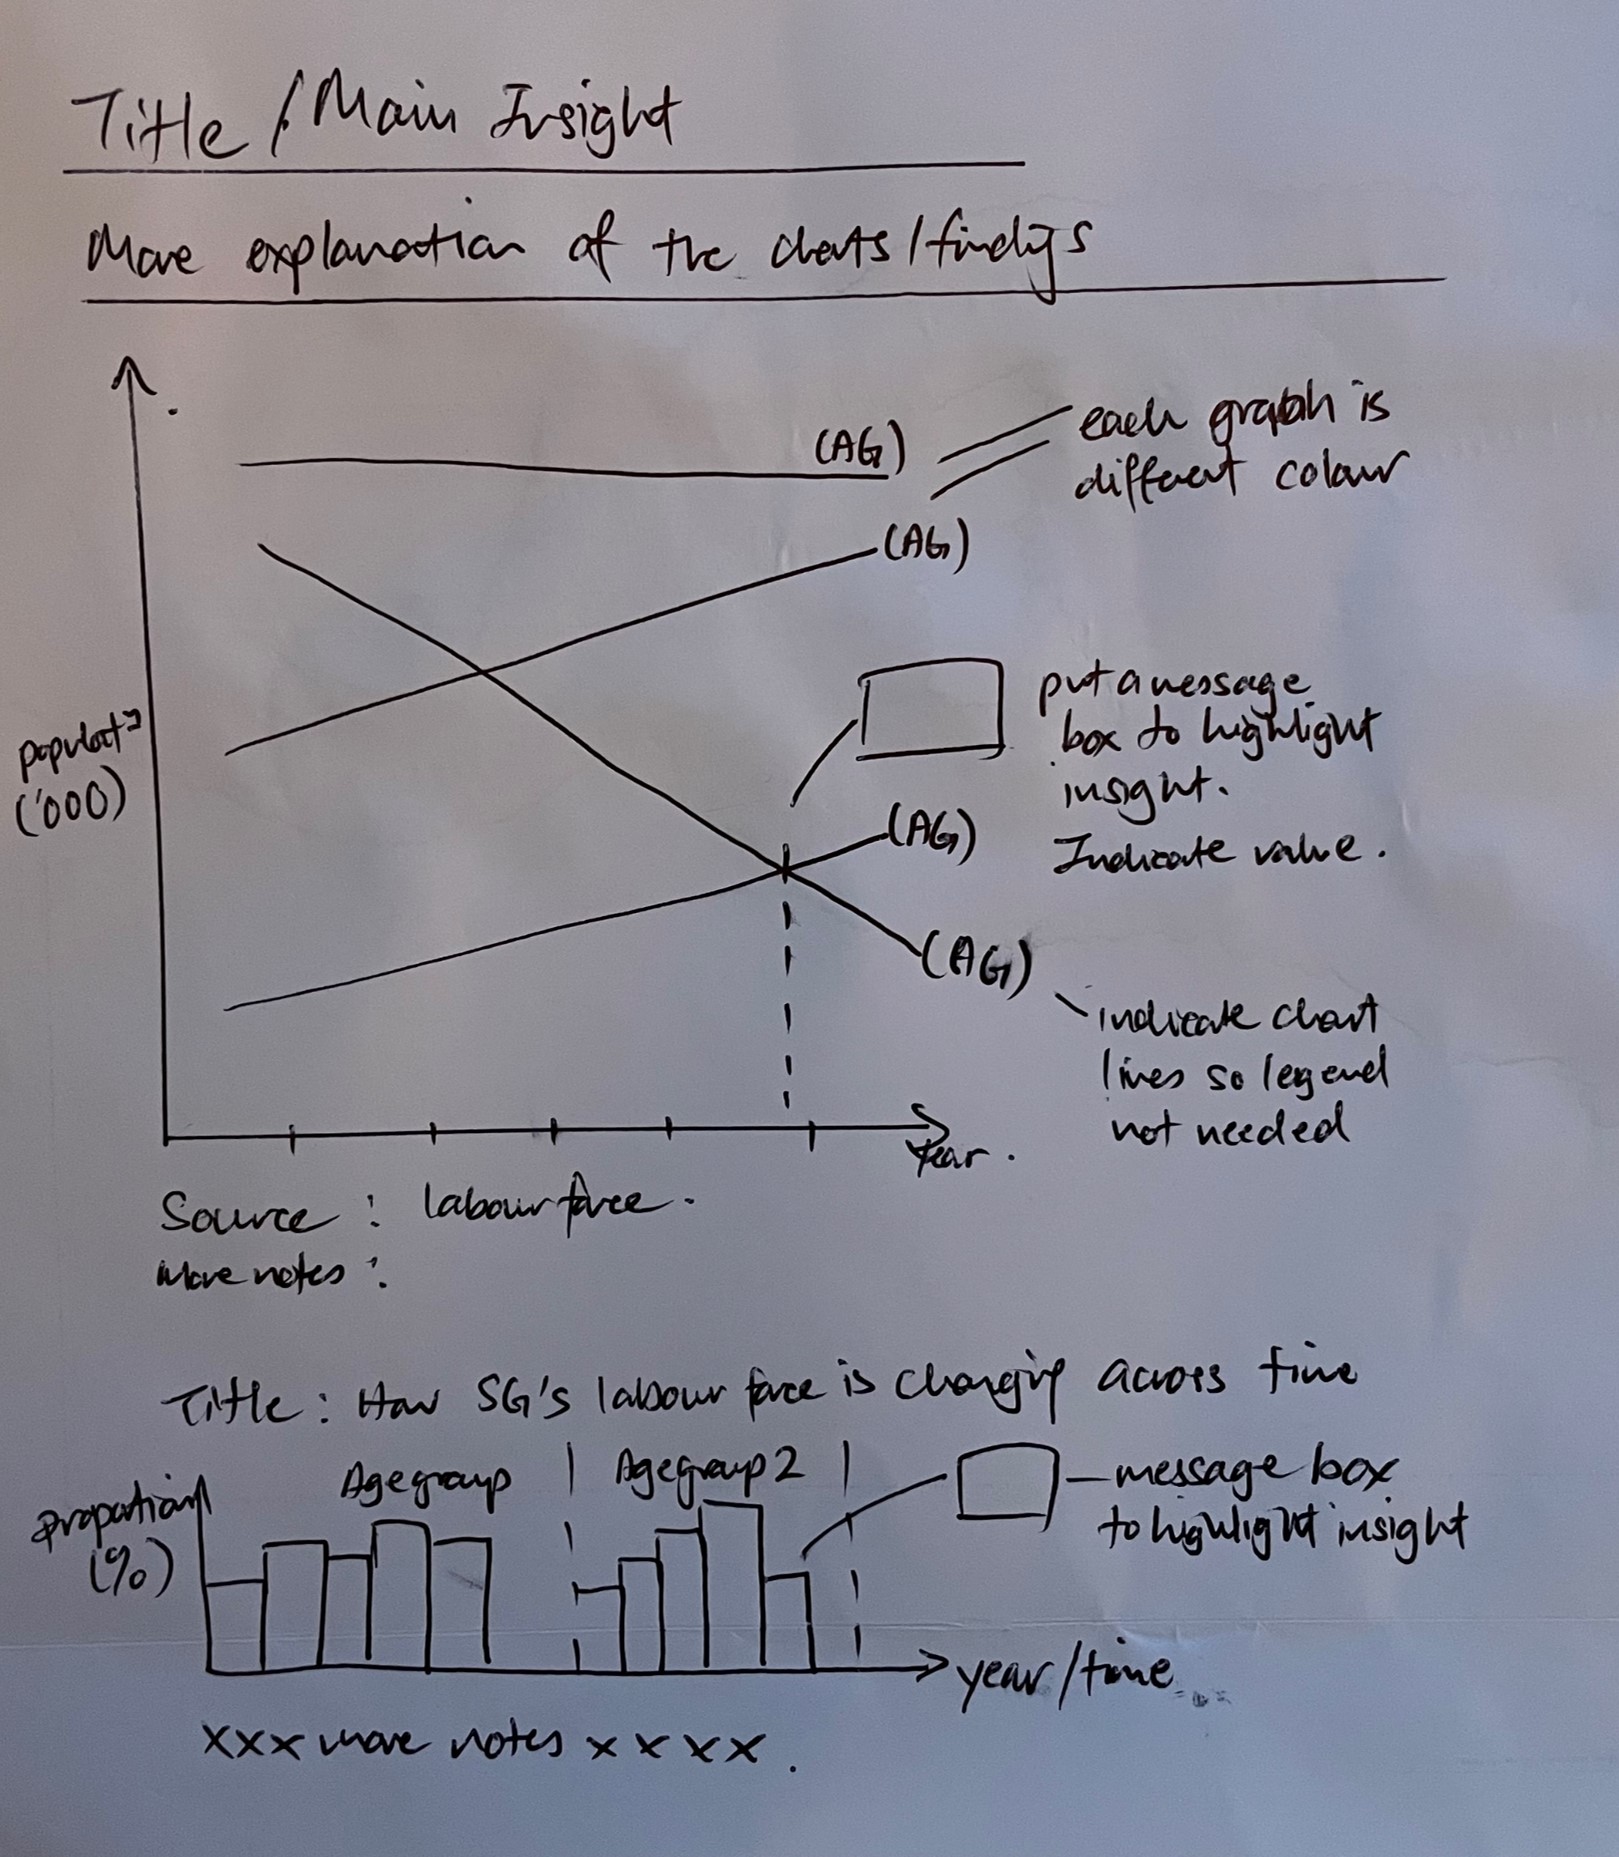 Title / Main Insight
More explanation of the charts/findings
(AG)
each graph is
different colour
(AG)
put a message
box to highlight
insight.
Indicate value.
('000)
(AG)
(AG)
indicate chart
lines so legend
not needed
Year.
Source : labour force.
More notes :
Title : How SG's labour force is changing across time
Agegroup
Agegroup 2
message box
to highlight insight
proportion
(%)
year/time
xxx more notes xxxx.